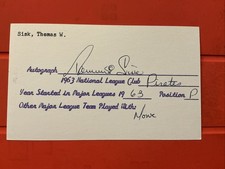 Sisk, Thomas W.
Autograph Tommie Sisk
1963 National League Club Pirates
Year Started in Major Leagues 19 63 Position P
Other Major League Team Played With:
None